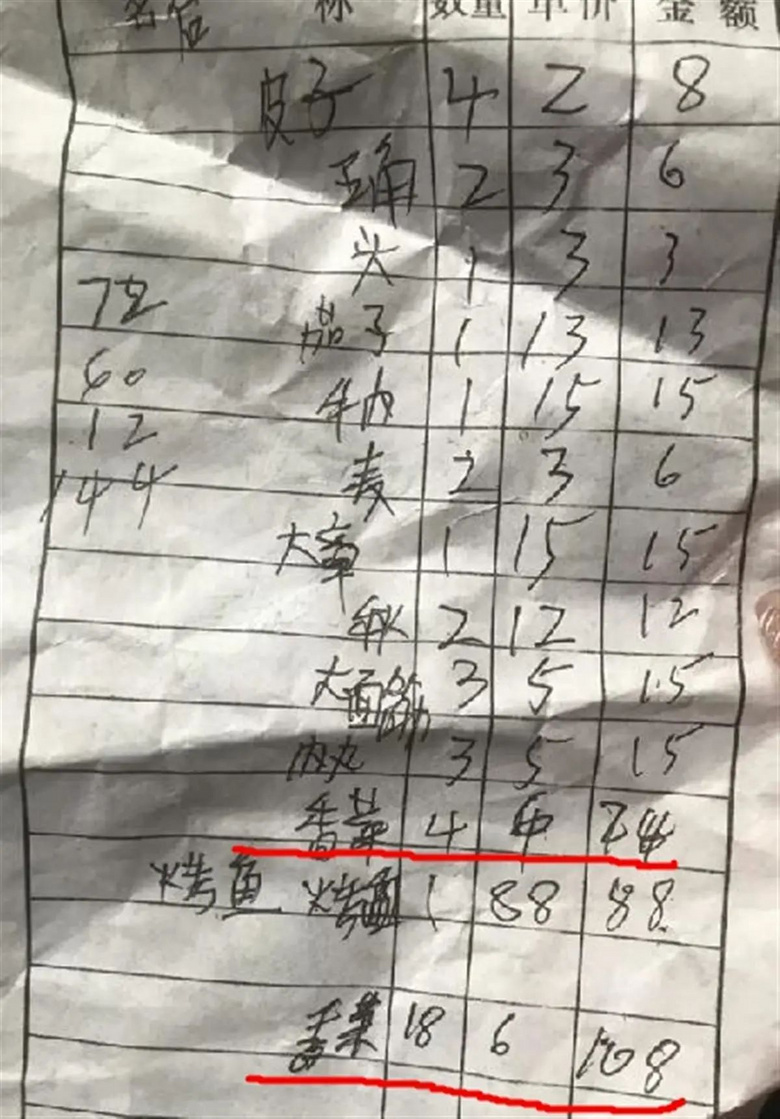 名 称 数量 单价 金额
皮子 4 2 8
2 3 6
头 1 3 3
72
茄子 1 13 13
60
牛肉 1 15 15
12
144
麦 2 3 6
大章 1 15 15
2 12 12
大面筋 3 5 15
肉丸 3 5 15
香菜 4 6 24
烤鱼 1 88 88
香菜 18 6 108